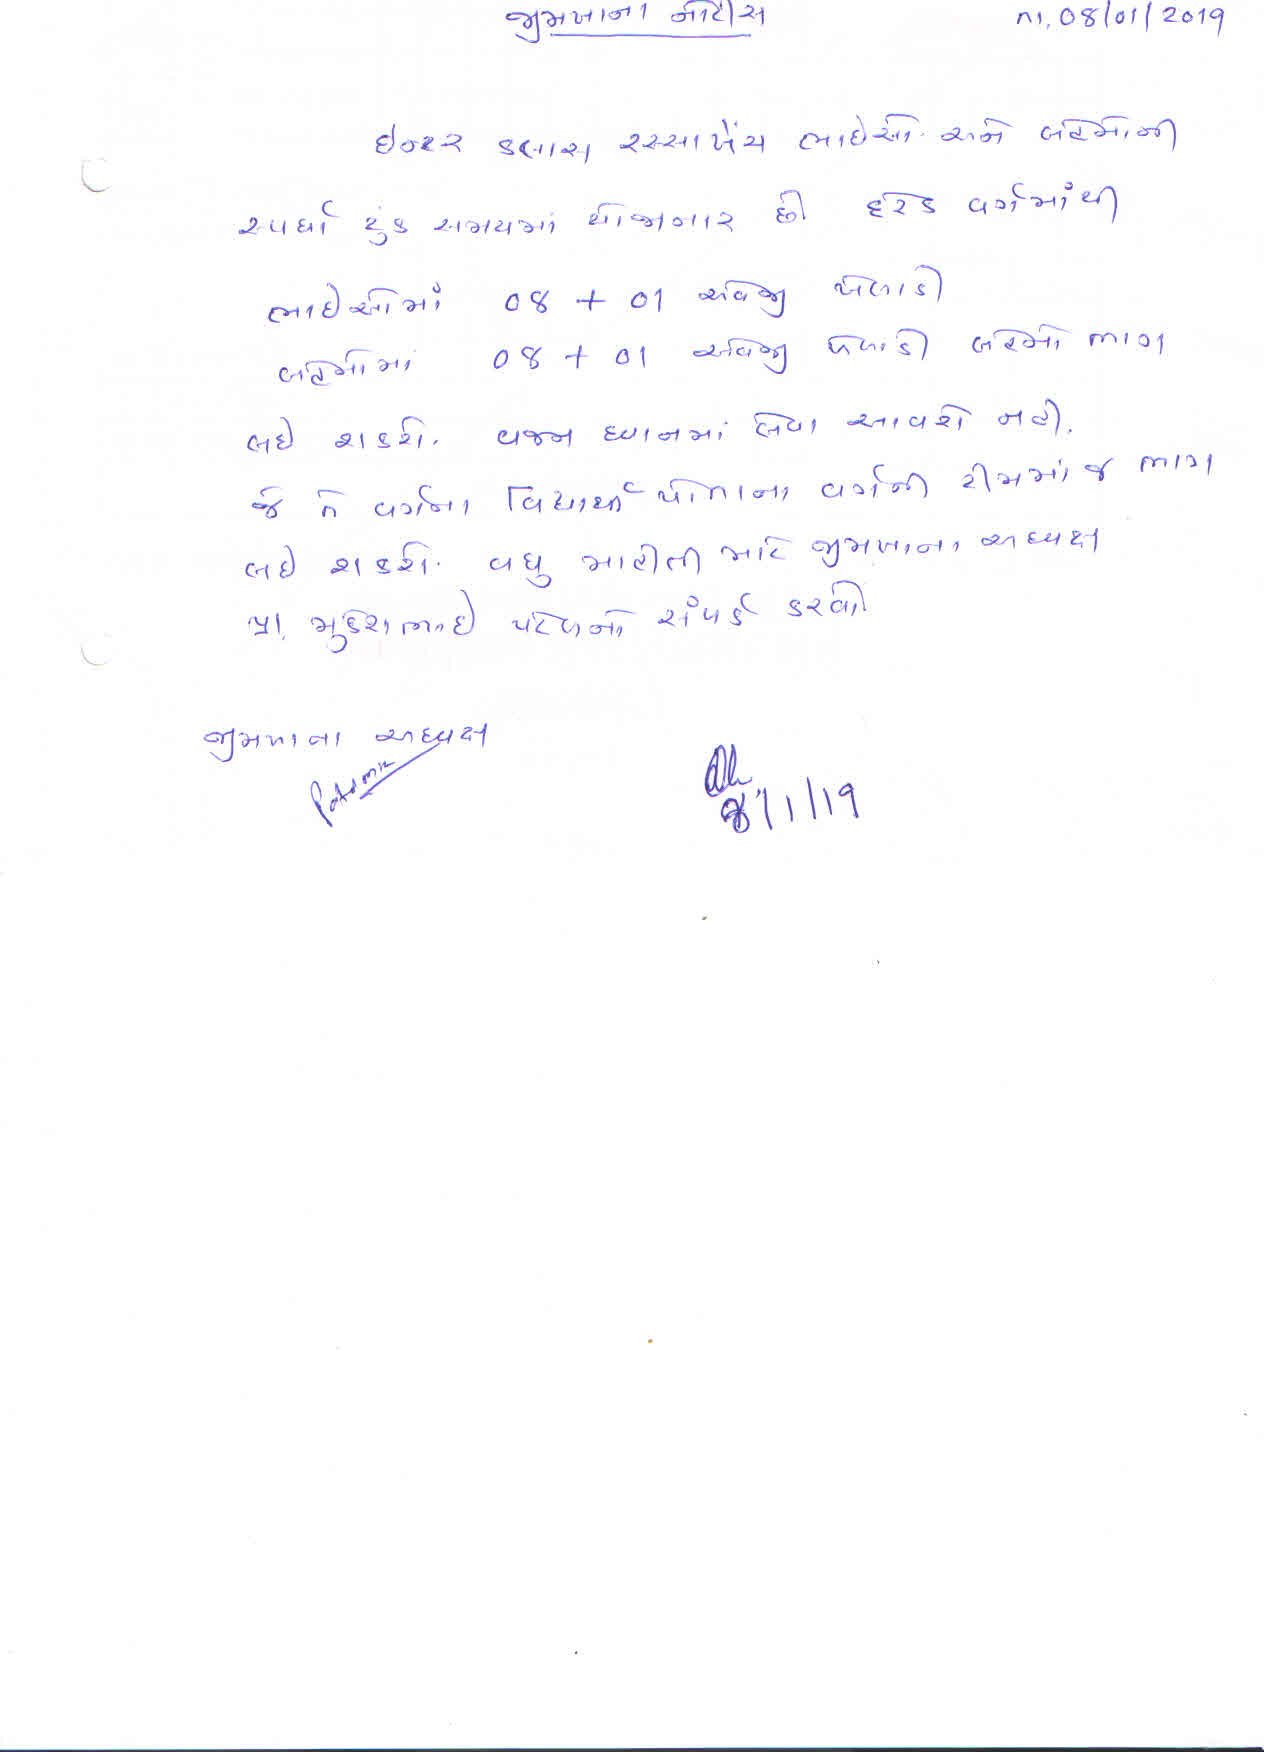 જીમખાના નોટીસ
તા. 08/01/2019
ઇન્ટર કલાસ રસ્સાખેંચ ભાઇઓ અને બહેનોની
સ્પર્ધા ટુંક સમયમાં યોજાનાર છે દરેક વર્ગમાંથી
ભાઇઓમાં 08 + 01 અવેજી ખેલાડી
બહેનોમાં 08 + 01 અવેજી ખેલાડી બહેનો ભાગ
લઇ શકશે. વજન ધ્યાનમાં લેવા આવશે નહી.
જે તે વર્ગના વિદ્યાર્થી પોતાના વર્ગની ટીમમાં જ ભાગ
લઇ શકશે. વધુ માહીતી માટે જીમખાના અધ્યક્ષ
પ્રા. મુકેશભાઇ પટેલનો સંપર્ક કરવો
જીમખાના અધ્યક્ષ
8/1/19